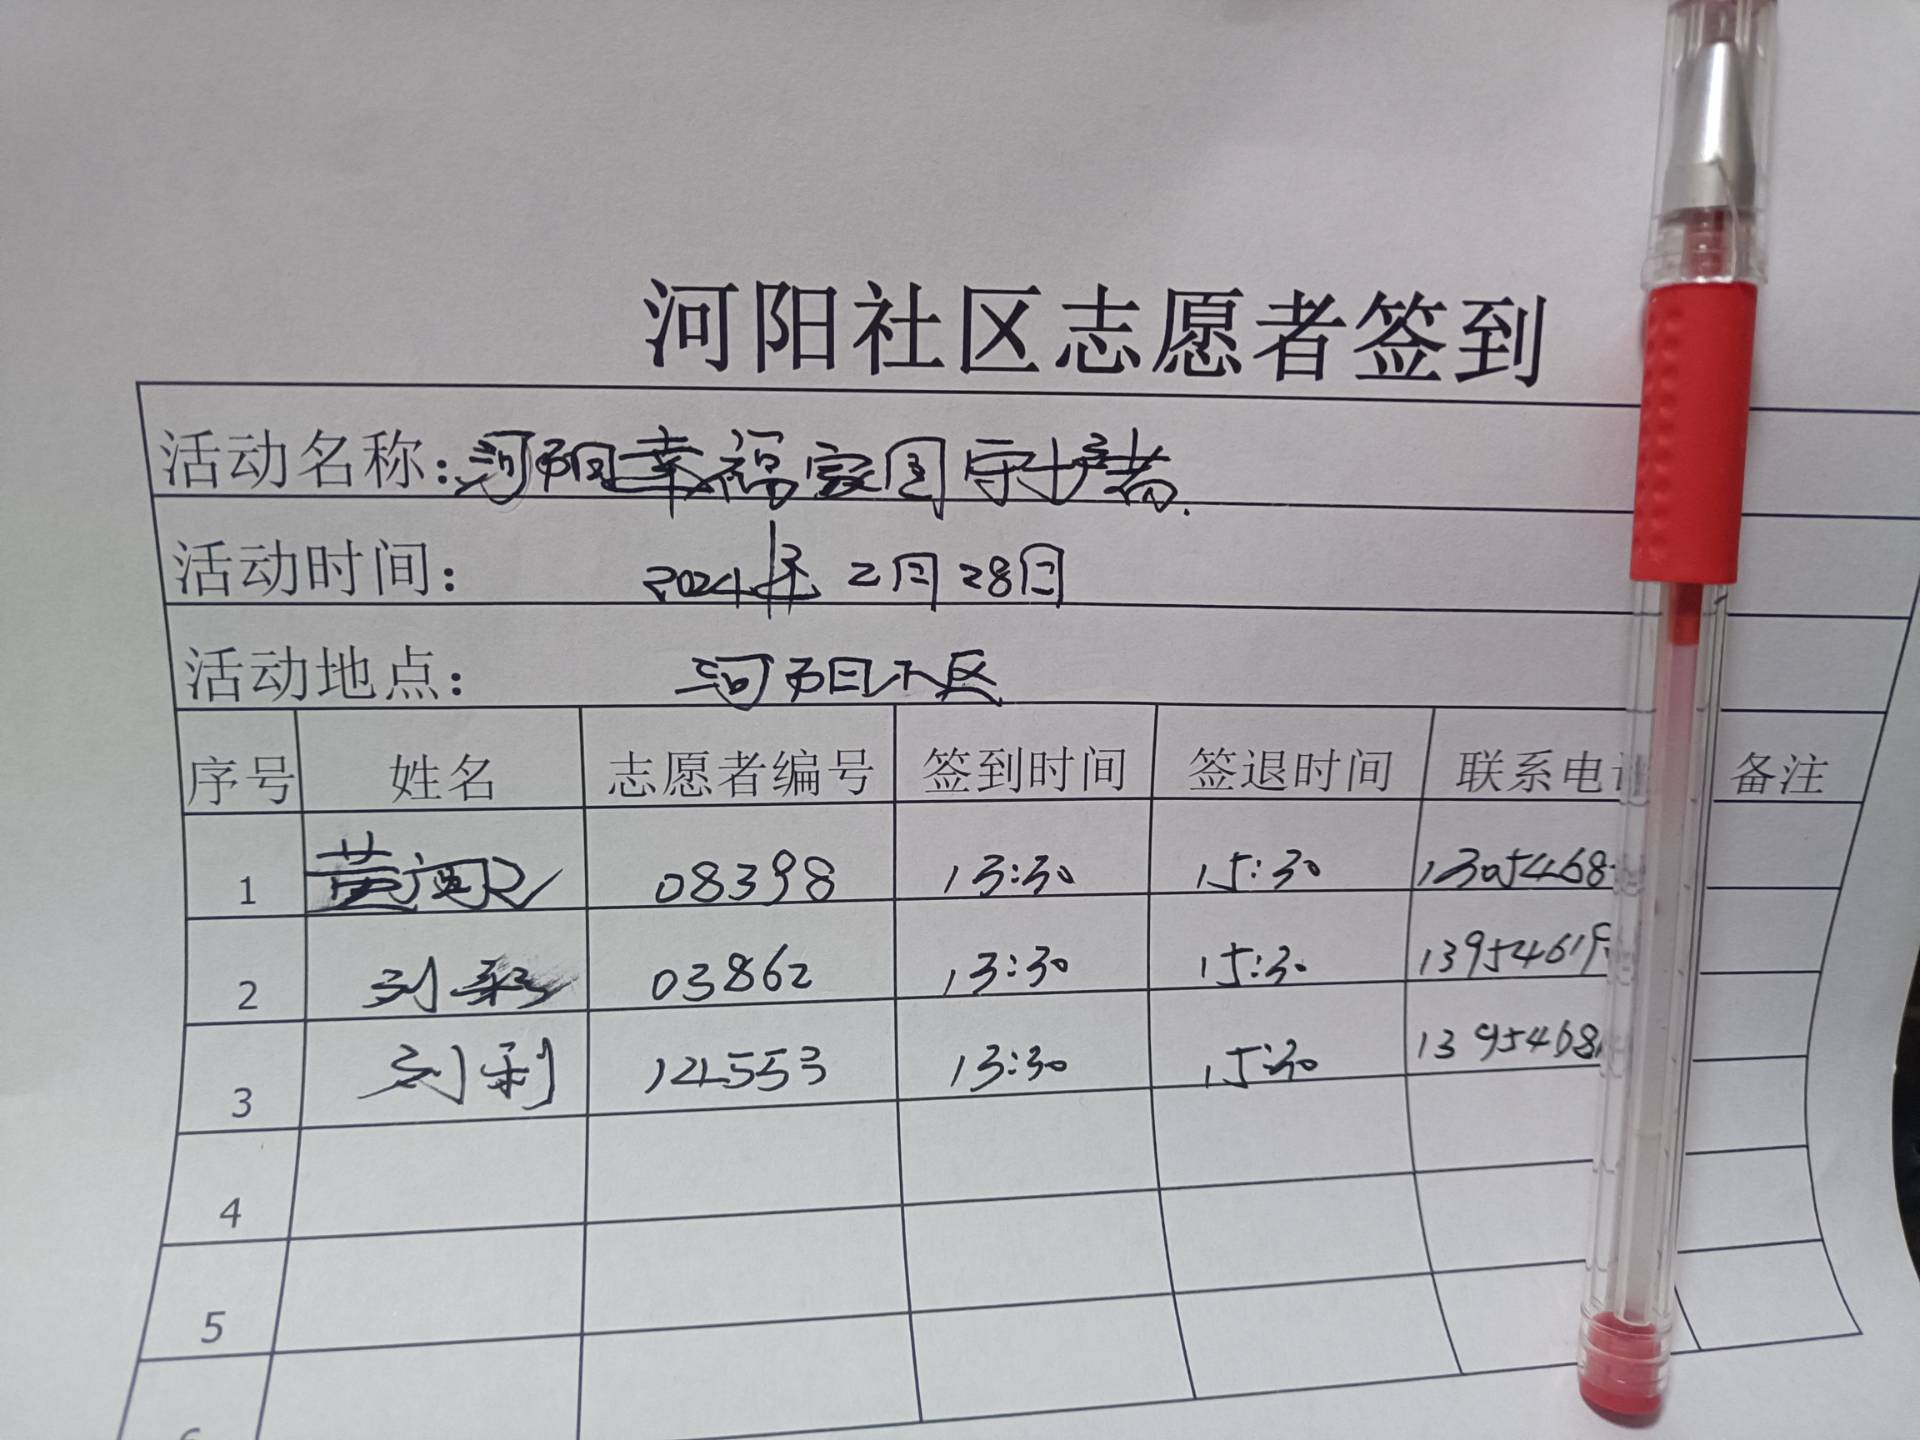 河阳社区志愿者签到
活动名称：河阳幸福家园守护者.
活动时间： 2024年2月28日
活动地点： 河阳小区
序号 姓名 志愿者编号 签到时间 签退时间 联系电 备注
1 08398 13:30 15:30 13054468
2 刘 03862 13:30 15:30 13954619
3 刘利 121553 13:30 15:30 1395468
4
5